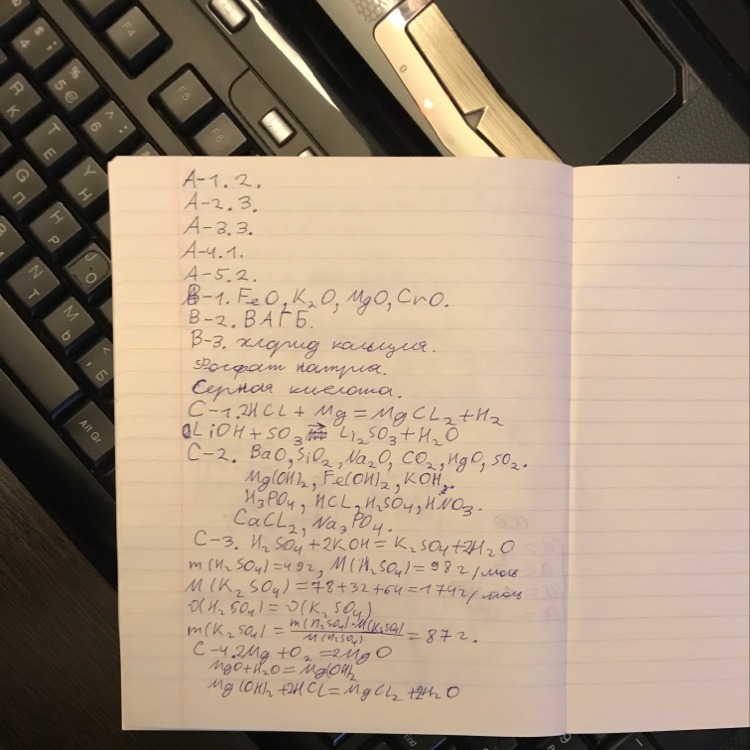 А-1. 2.
А-2. 3.
А-3. 3.
А-4. 1.
А-5. 2.
В-1. FeO, K₂O, MgO, CrO.
В-2. ВАГБ.
В-3. хлорид кальция.
Фосфат натрия.
Серная кислота.
С-1. 2HCL + Mg = MgCL₂ + H₂
LiOH + SO₃ → Li₂SO₃ + H₂O
С-2. BaO, SiO₂, Na₂O, CO₂, HgO, SO₂.
Mg(OH)₂, Fe(OH)₂, KOH.
H₃PO₄, HCL, H₂SO₄, HNO₃.
CaCL₂, Na₃PO₄.
С-3. H₂SO₄ + 2KOH = K₂SO₄ + 2H₂O
m(H₂SO₄) = 49г, M(H₂SO₄) = 98 г/моль
M(K₂SO₄) = 78 + 32 + 64 = 174 г/моль
υ(H₂SO₄) = υ(K₂SO₄)
m(K₂SO₄) = m(H₂SO₄)·M(K₂SO₄) / M(H₂SO₄) = 87 г.
С-4. 2Mg + O₂ = 2MgO
MgO + H₂O = Mg(OH)₂
Mg(OH)₂ + 2HCL = MgCL₂ + 2H₂O
Alt Gr
F4
F5
F6